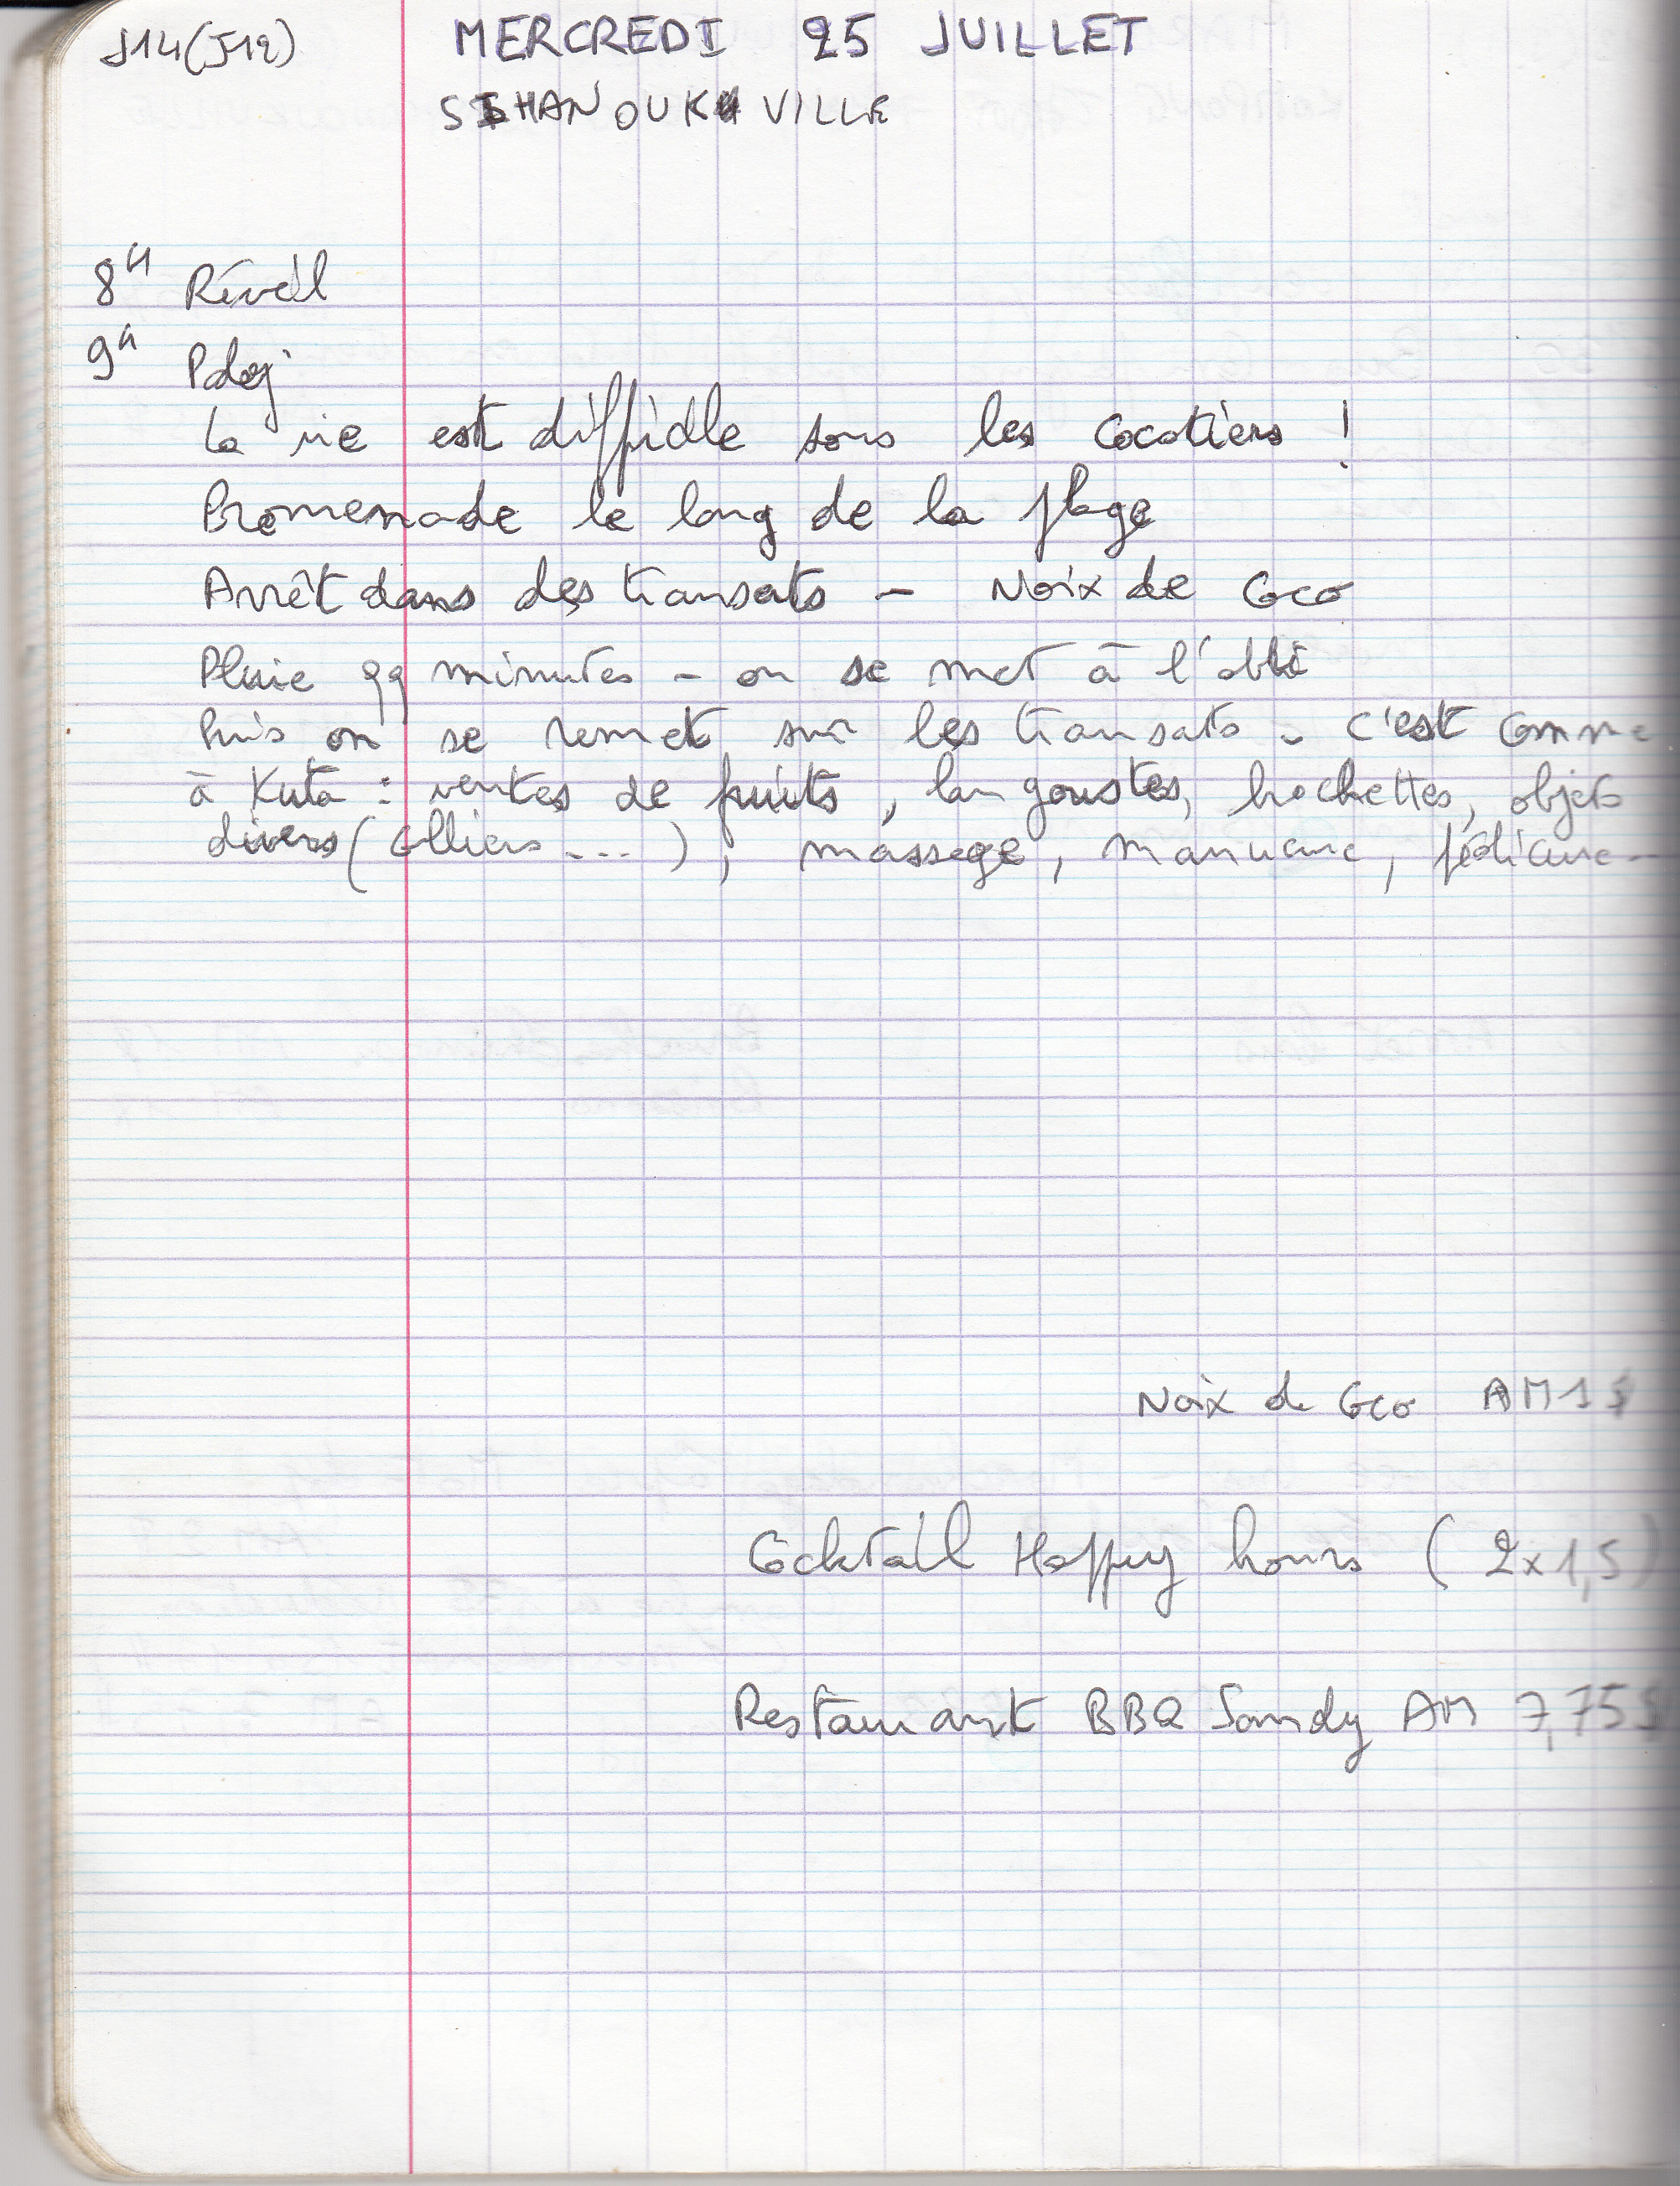 J14(J12) MERCREDI 25 JUILLET
SIHANOUKVILLE
8h Réveil
9h Pdej
La vie est difficile sous les cocotiers !
Promenade le long de la plage
Arrêt dans des transats - Noix de Coco
Pluie qq minutes - on se met à l'abri
Puis on se remet sur les transats - c'est comme
à Kuta : ventes de fruits, langoustes, brochettes, objets
divers (colliers ...), massage, manucure, pédicure --
Noix de Coco AM 1$
Cocktail Happy hours (2x1,5)
Restaurant BBQ Sandy AM 7,75$